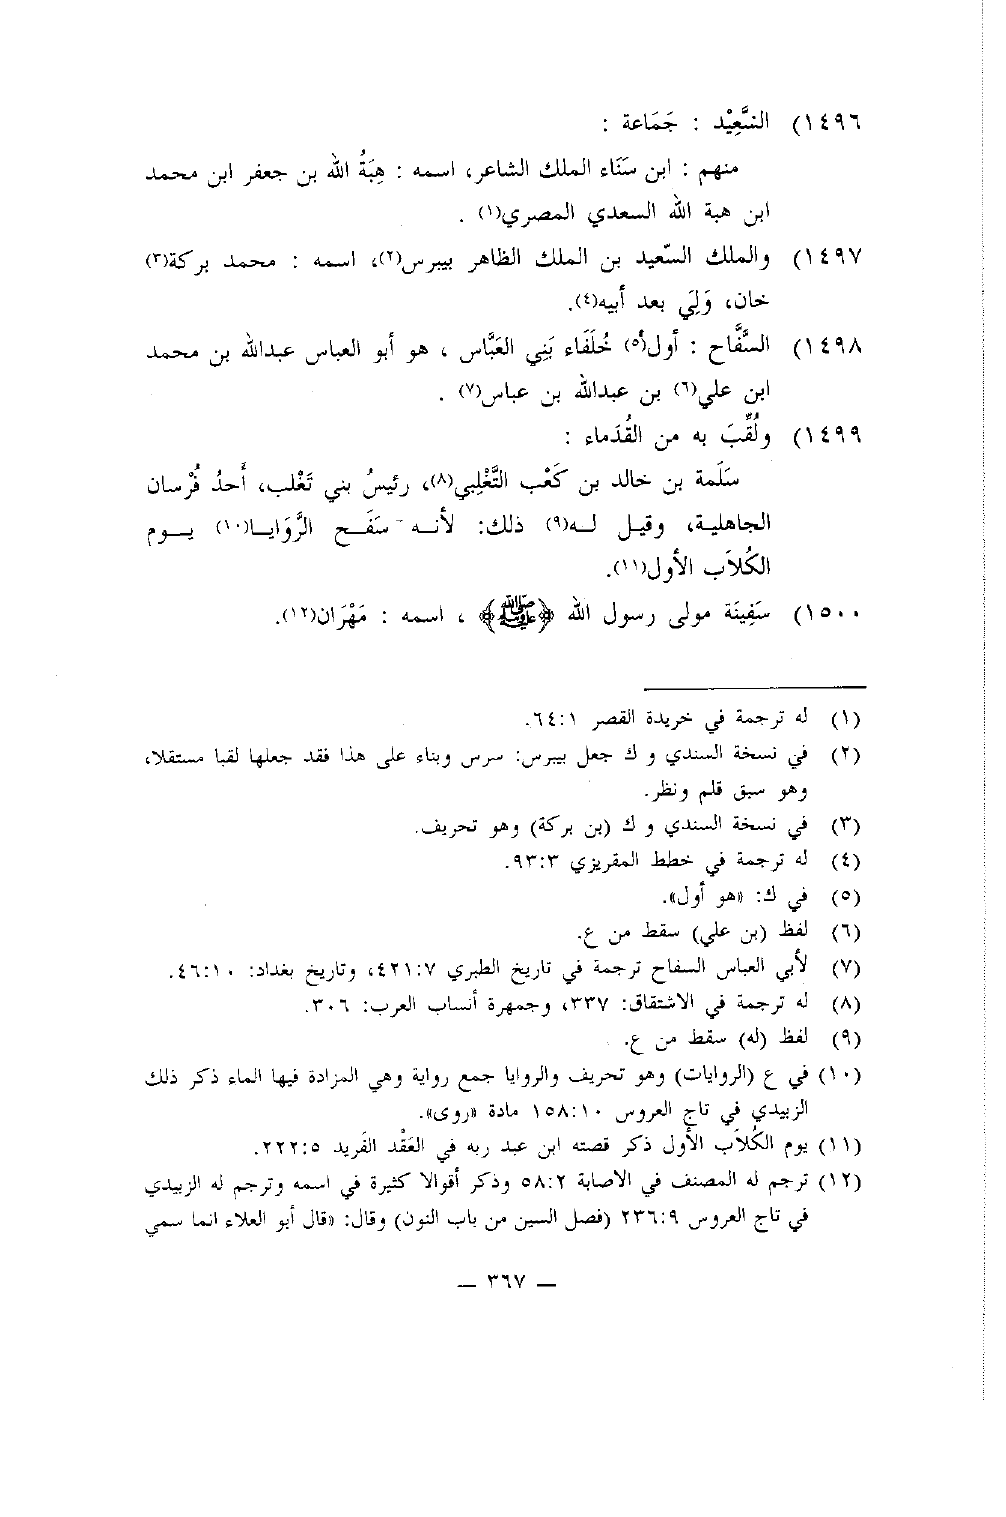 ١٤٩٦) السَّعِيْد : جَمَاعة :
منهم : ابن سَنَاء الملك الشاعر، اسمه : هِبَةُ الله بن جعفر ابن محمد
ابن هبة الله السعدي المصري(١) .
١٤٩٧) والملك السّعيد بن الملك الظاهر بيبرس(٢)، اسمه : محمد بركة(٣)
خان، وَلِيَ بعد أبيه(٤).
١٤٩٨) السَّفَّاح : أول(٥) خُلَفَاء بَنِي العَبَّاس ، هو أبو العباس عبدالله بن محمد
ابن علي(٦) بن عبدالله بن عباس(٧) .
١٤٩٩) ولُقِّبَ به من القُدَماء :
سَلَمة بن خالد بن كَعْب التَّغْلِبي(٨)، رئيسُ بني تَغْلب، أَحدُ فُرْسان
الجاهلية، وقيل له(٩) ذلك: لأنه سَفَح الرَّوَايا(١٠) يوم
الكُلاَب الأول(١١).
١٥٠٠) سَفِينَة مولى رسول الله ﴿ﷺ﴾ ، اسمه : مَهْرَان(١٢).
(١) له ترجمة في خريدة القصر ٦٤:١.
(٢) في نسخة السندي و ك جعل بيبرس: سرس وبناء على هذا فقد جعلها لقبا مستقلا،
وهو سبق قلم ونظر.
(٣) في نسخة السندي و ك (بن بركة) وهو تحريف.
(٤) له ترجمة في خطط المقريزي ٩٣:٣.
(٥) في ك: «هو أول».
(٦) لفظ (بن علي) سقط من ع.
(٧) لأبي العباس السفاح ترجمة في تاريخ الطبري ٤٢١:٧، وتاريخ بغداد: ٤٦:١٠.
(٨) له ترجمة في الاشتقاق: ٣٣٧، وجمهرة أنساب العرب: ٣٠٦.
(٩) لفظ (له) سقط من ع.
(١٠) في ع (الروايات) وهو تحريف والروايا جمع رواية وهي المزادة فيها الماء ذكر ذلك
الزبيدي في تاج العروس ١٥٨:١٠ مادة «روى».
(١١) يوم الكُلاَب الأول ذكر قصته ابن عبد ربه في العَقْد الفَريد ٢٢٢:٥.
(١٢) ترجم له المصنف في الاصابة ٥٨:٢ وذكر أقوالا كثيرة في اسمه وترجم له الزبيدي
في تاج العروس ٢٣٦:٩ (فصل السين من باب النون) وقال: «قال أبو العلاء انما سمي
— ٣٦٧ —